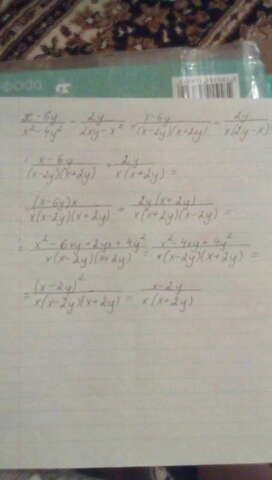 x-6y/x²-4y² - 2y/2xy-x² = x-6y/(x-2y)(x+2y) - 2y/x(2y-x) =
= x-6y/(x-2y)(x+2y) + 2y/x(x+2y) =
(x-6y)x/x(x-2y)(x+2y) + 2y(x+2y)/x(x+2y)(x-2y) =
= x²-6xy+2yx+4y²/x(x-2y)(x+2y) = x²-4xy+4y²/x(x-2y)(x+2y) =
= (x-2y)²/x(x-2y)(x+2y) = x-2y/x(x+2y)